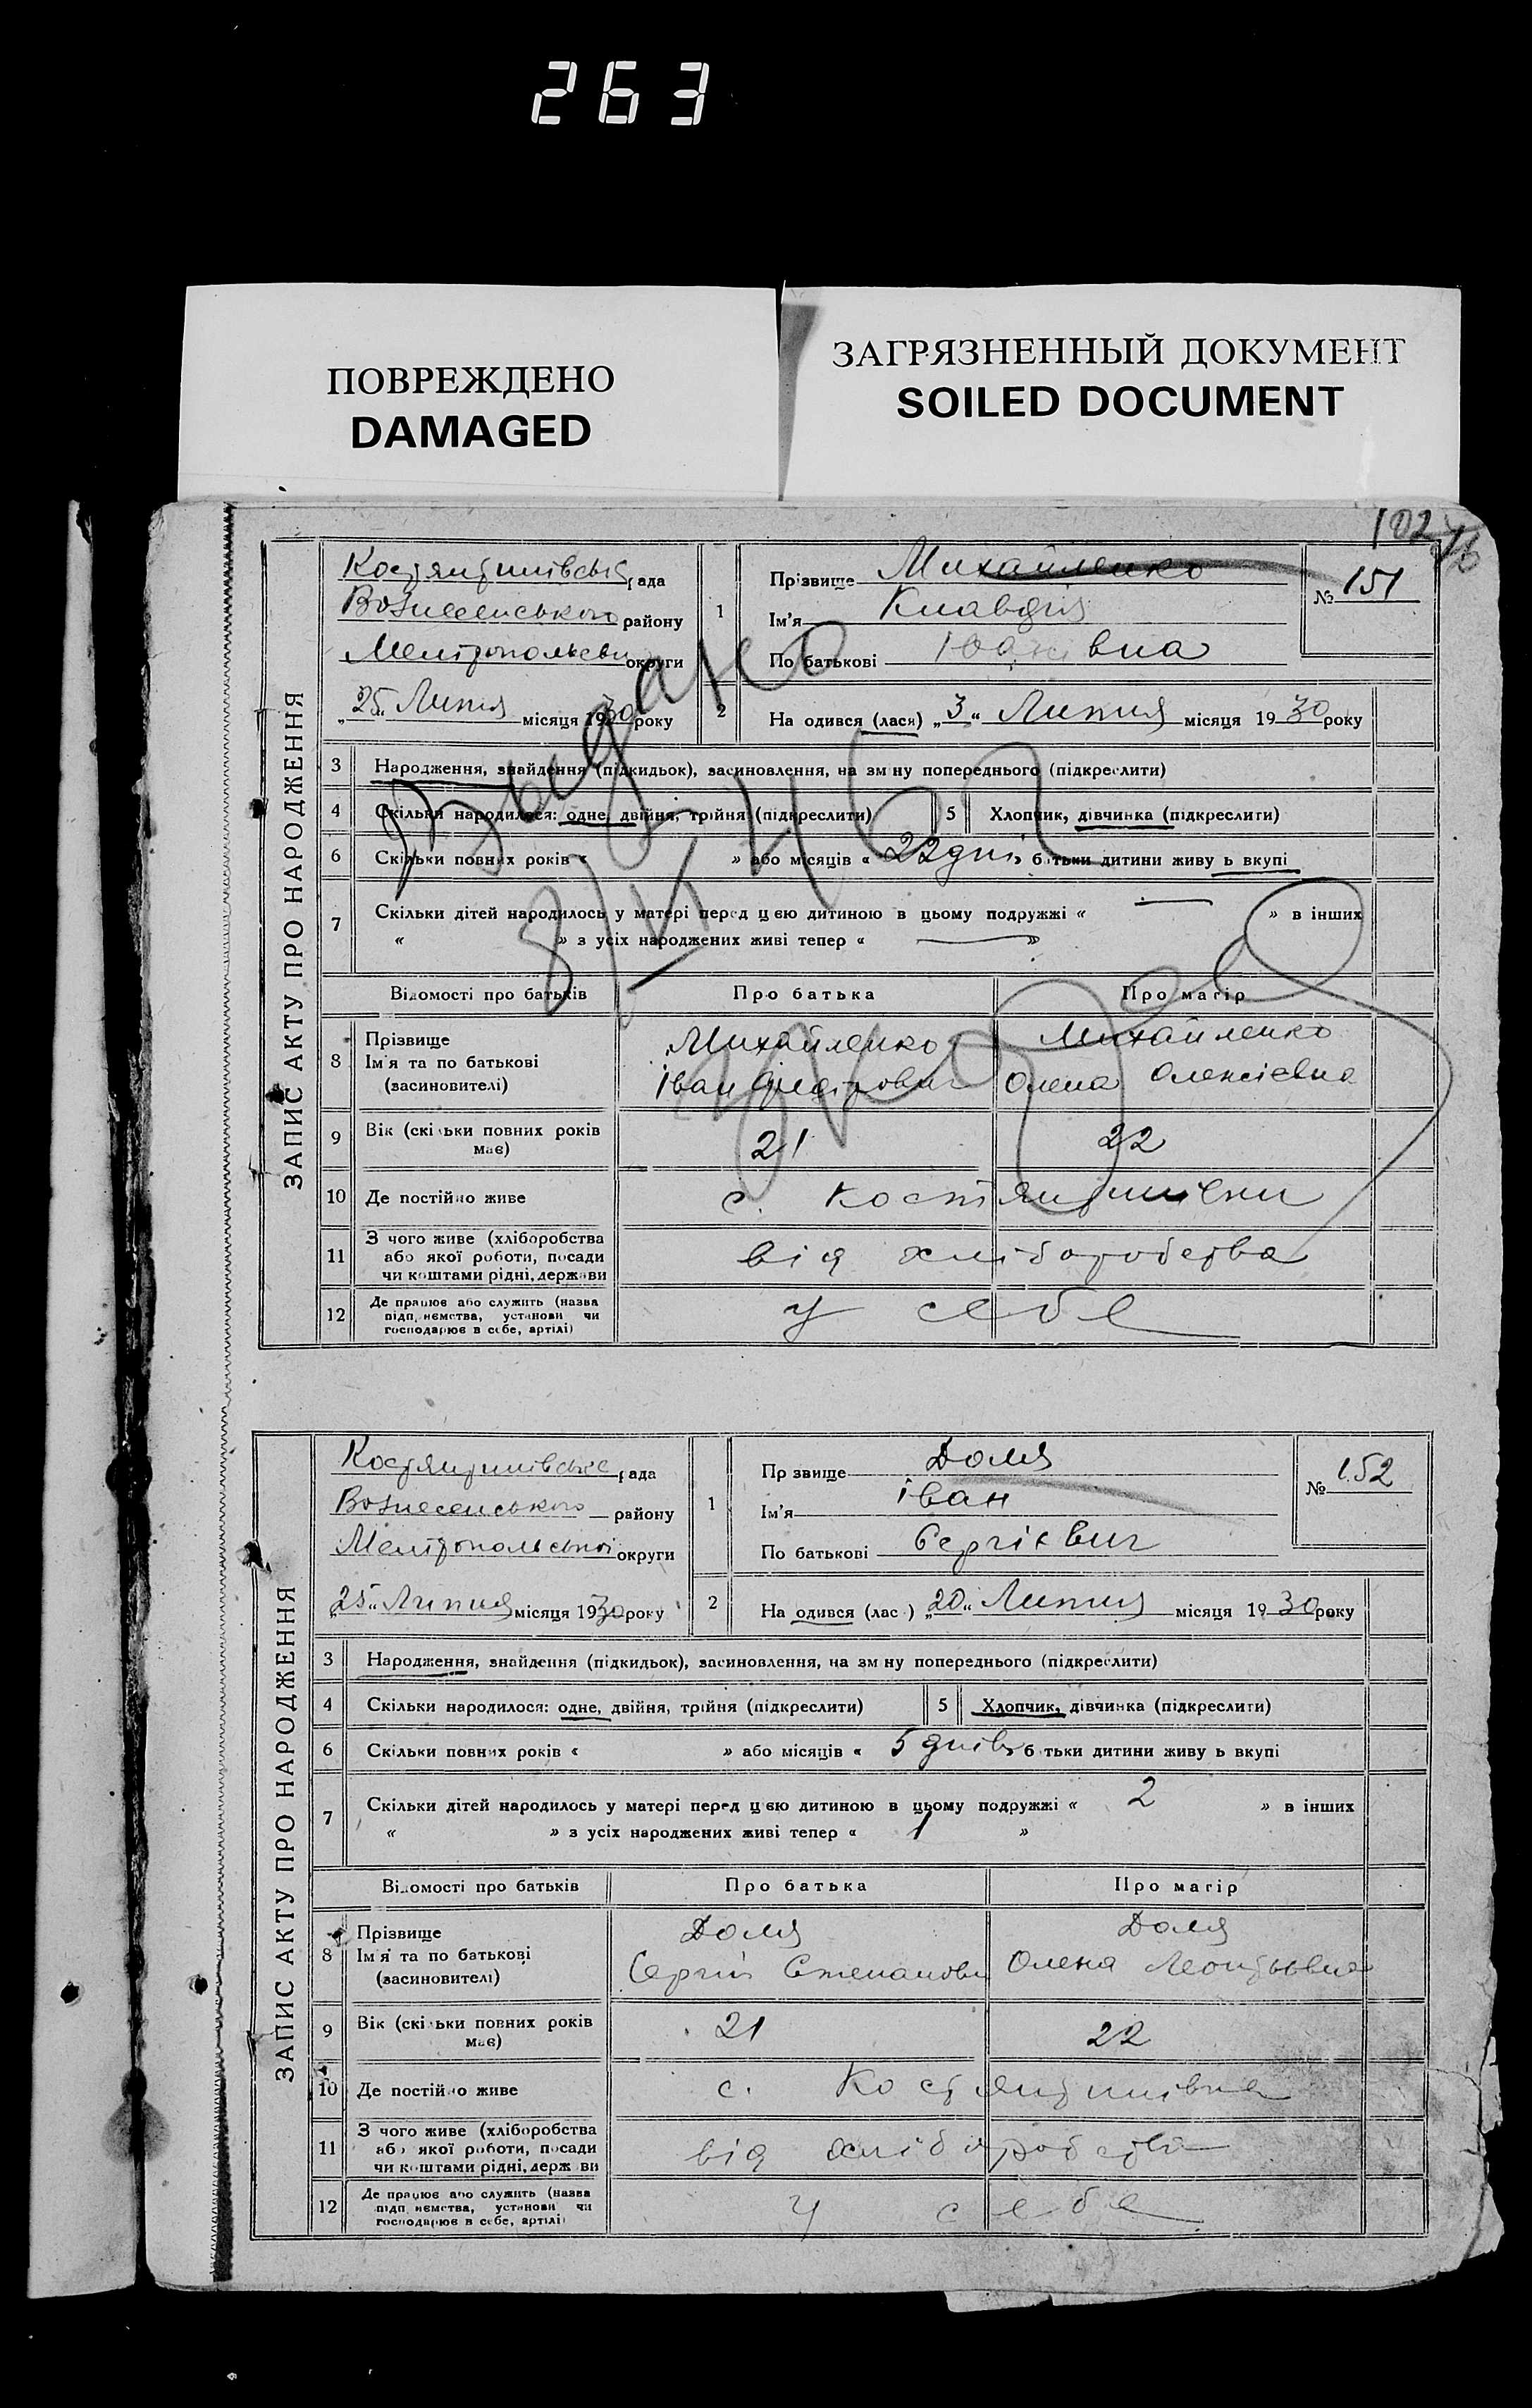 263
ПОВРЕЖДЕНО
DAMAGED
ЗАГРЯЗНЕННЫЙ ДОКУМЕНТ
SOILED DOCUMENT
102
ЗАПИС АКТУ ПРО НАРОДЖЕННЯ
Костянтинівськ рада
Вознесенського району
Мелітопольськ округи
„25“ Липня місяця 1930 року
1
Прізвище Михайленко
Ім'я Клавдія
По батькові Іванівна
№ 151
2
На одився (лася) „3“ Липня місяця 1930 року
3 Народження, знайдення (підкидьок), засиновлення, на зм ну попереднього (підкреслити)
4 Скільки народилося: одне, двійня, трійня (підкреслити) 5 Хлопчик, дівчинка (підкреслити)
6 Скільки повних років « » або місяців « 22 дні » батьки дитини живу ь вкупі
7 Скільки дітей народилось у матері перед цією дитиною в цьому подружжі « — » в інших
« » з усіх народжених живі тепер « — »
Відомості про батьків Про батька Про матір
8 Прізвище Михайленко Михайленко
Ім'я та по батькові Іван Олена Олексієвна
(засиновителі)
9 Вік (скільки повних років має) 21 22
10 Де постійно живе с. Костянтинівки
11 З чого живе (хліборобства
або якої роботи, посади
чи коштами рідні, держави
від хліборобства
12 Де працює або служить (назва
підп иємства, установи чи
господарює в себе, артілі)
у себе
Выдано
ЗАПИС АКТУ ПРО НАРОДЖЕННЯ
Костянтинівськ рада
Вознесенського району
Мелітопольської округи
„25“ Липня місяця 1930 року
1
Пр звище Доля
Ім'я Іван
По батькові Сергієвич
№ 152
2
На одився (лас ) „20“ Липня місяця 1930 року
3 Народження, знайдення (підкидьок), засиновлення, на зм ну попереднього (підкреслити)
4 Скільки народилося: одне, двійня, трійня (підкреслити) 5 Хлопчик, дівчинка (підкреслити)
6 Скільки повних років « » або місяців « 5 днів » б тьки дитини живу ь вкупі
7 Скільки дітей народилось у матері перед цією дитиною в цьому подружжі « 2 » в інших
« » з усіх народжених живі тепер « 1 »
Відомості про батьків Про батька Про матір
8 Прізвище Доля Доля
Ім'я та по батькові Сергій Степанови Олена Леонтьевна
(засиновителі)
9 Вік (скільки повних років має) 21 22
10 Де постійно живе с. Костянтинівна
11 З чого живе (хліборобства
або якої роботи, посади
чи коштами рідні, держ ви
від хліборобства
12 Де працює або служить (назва
підп иємства, установи чи
господарює в себе, артілі)
у себе